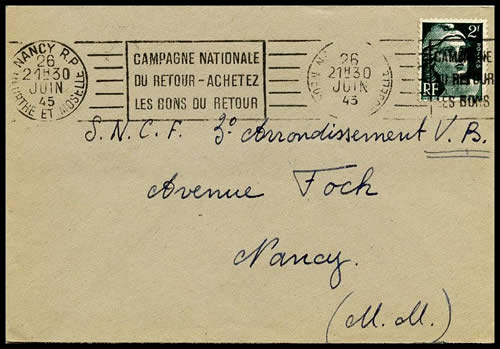 NANCY R.P.
26
21H30
JUIN
45
MEURTHE ET MOSELLE
CAMPAGNE NATIONALE
DU RETOUR - ACHETEZ
LES BONS DU RETOUR
26
21H30
JUIN
45
MOSELLE
2F
RF
CAMPAGNE
DU RETOUR
LES BONS
S.N.C.F. 3º Arrondissement V.B.
Avenue Foch
Nancy.
(M.M.)